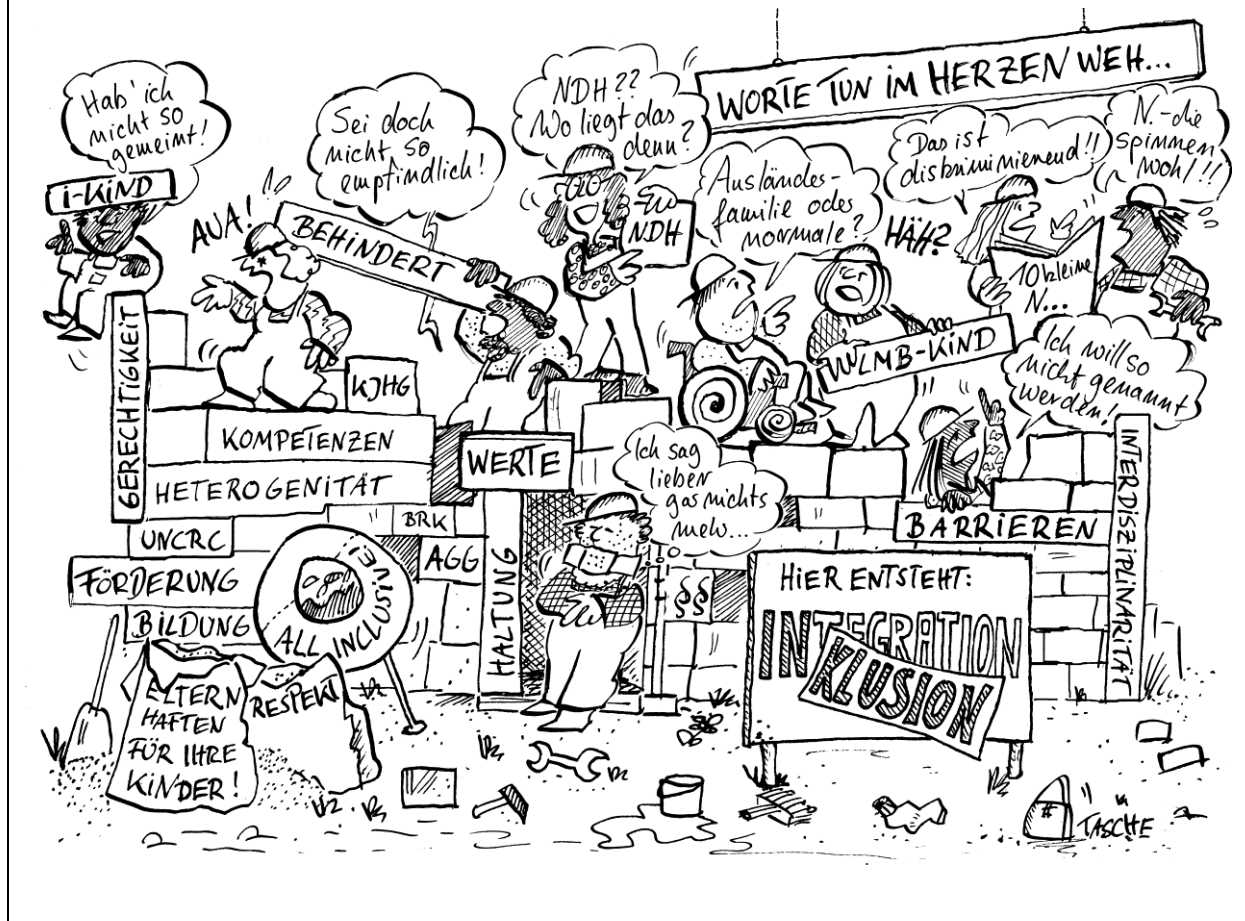 WORTE TUN IM HERZEN WEH...
Hab' ich
nicht so
gemeint!
i-KiND
AUA!
Sei doch
nicht so
empfindlich!
BEHiNDERT
NDH??
Wo liegt das
denn?
NDH
Ausländer-
familie oder
normale?
HÄH?
WLMB-KiND
Das ist
diskriminierend!!
N.-die
spinnen
wohl!!
10 kleine
N...
Ich will so
nicht genannt
werden!
GERECHTIGKEIT
KJHG
KOMPETENZEN
HETEROGENITÄT
WERTE
Ich sag
lieber
gar nichts
mehr...
BRK
UNCRC
AGG
FÖRDERUNG
BILDUNG
ALL INCLUSIVE!
HALTUNG
§§
BARRiEREN
INTERDISZIPLINARITÄT
HiER ENTSTEHT:
INTEGRATION
KLUSION
ELTERN
HAFTEN
FÜR IHRE
KiNDER!
RESPEKT
#
TASCHE